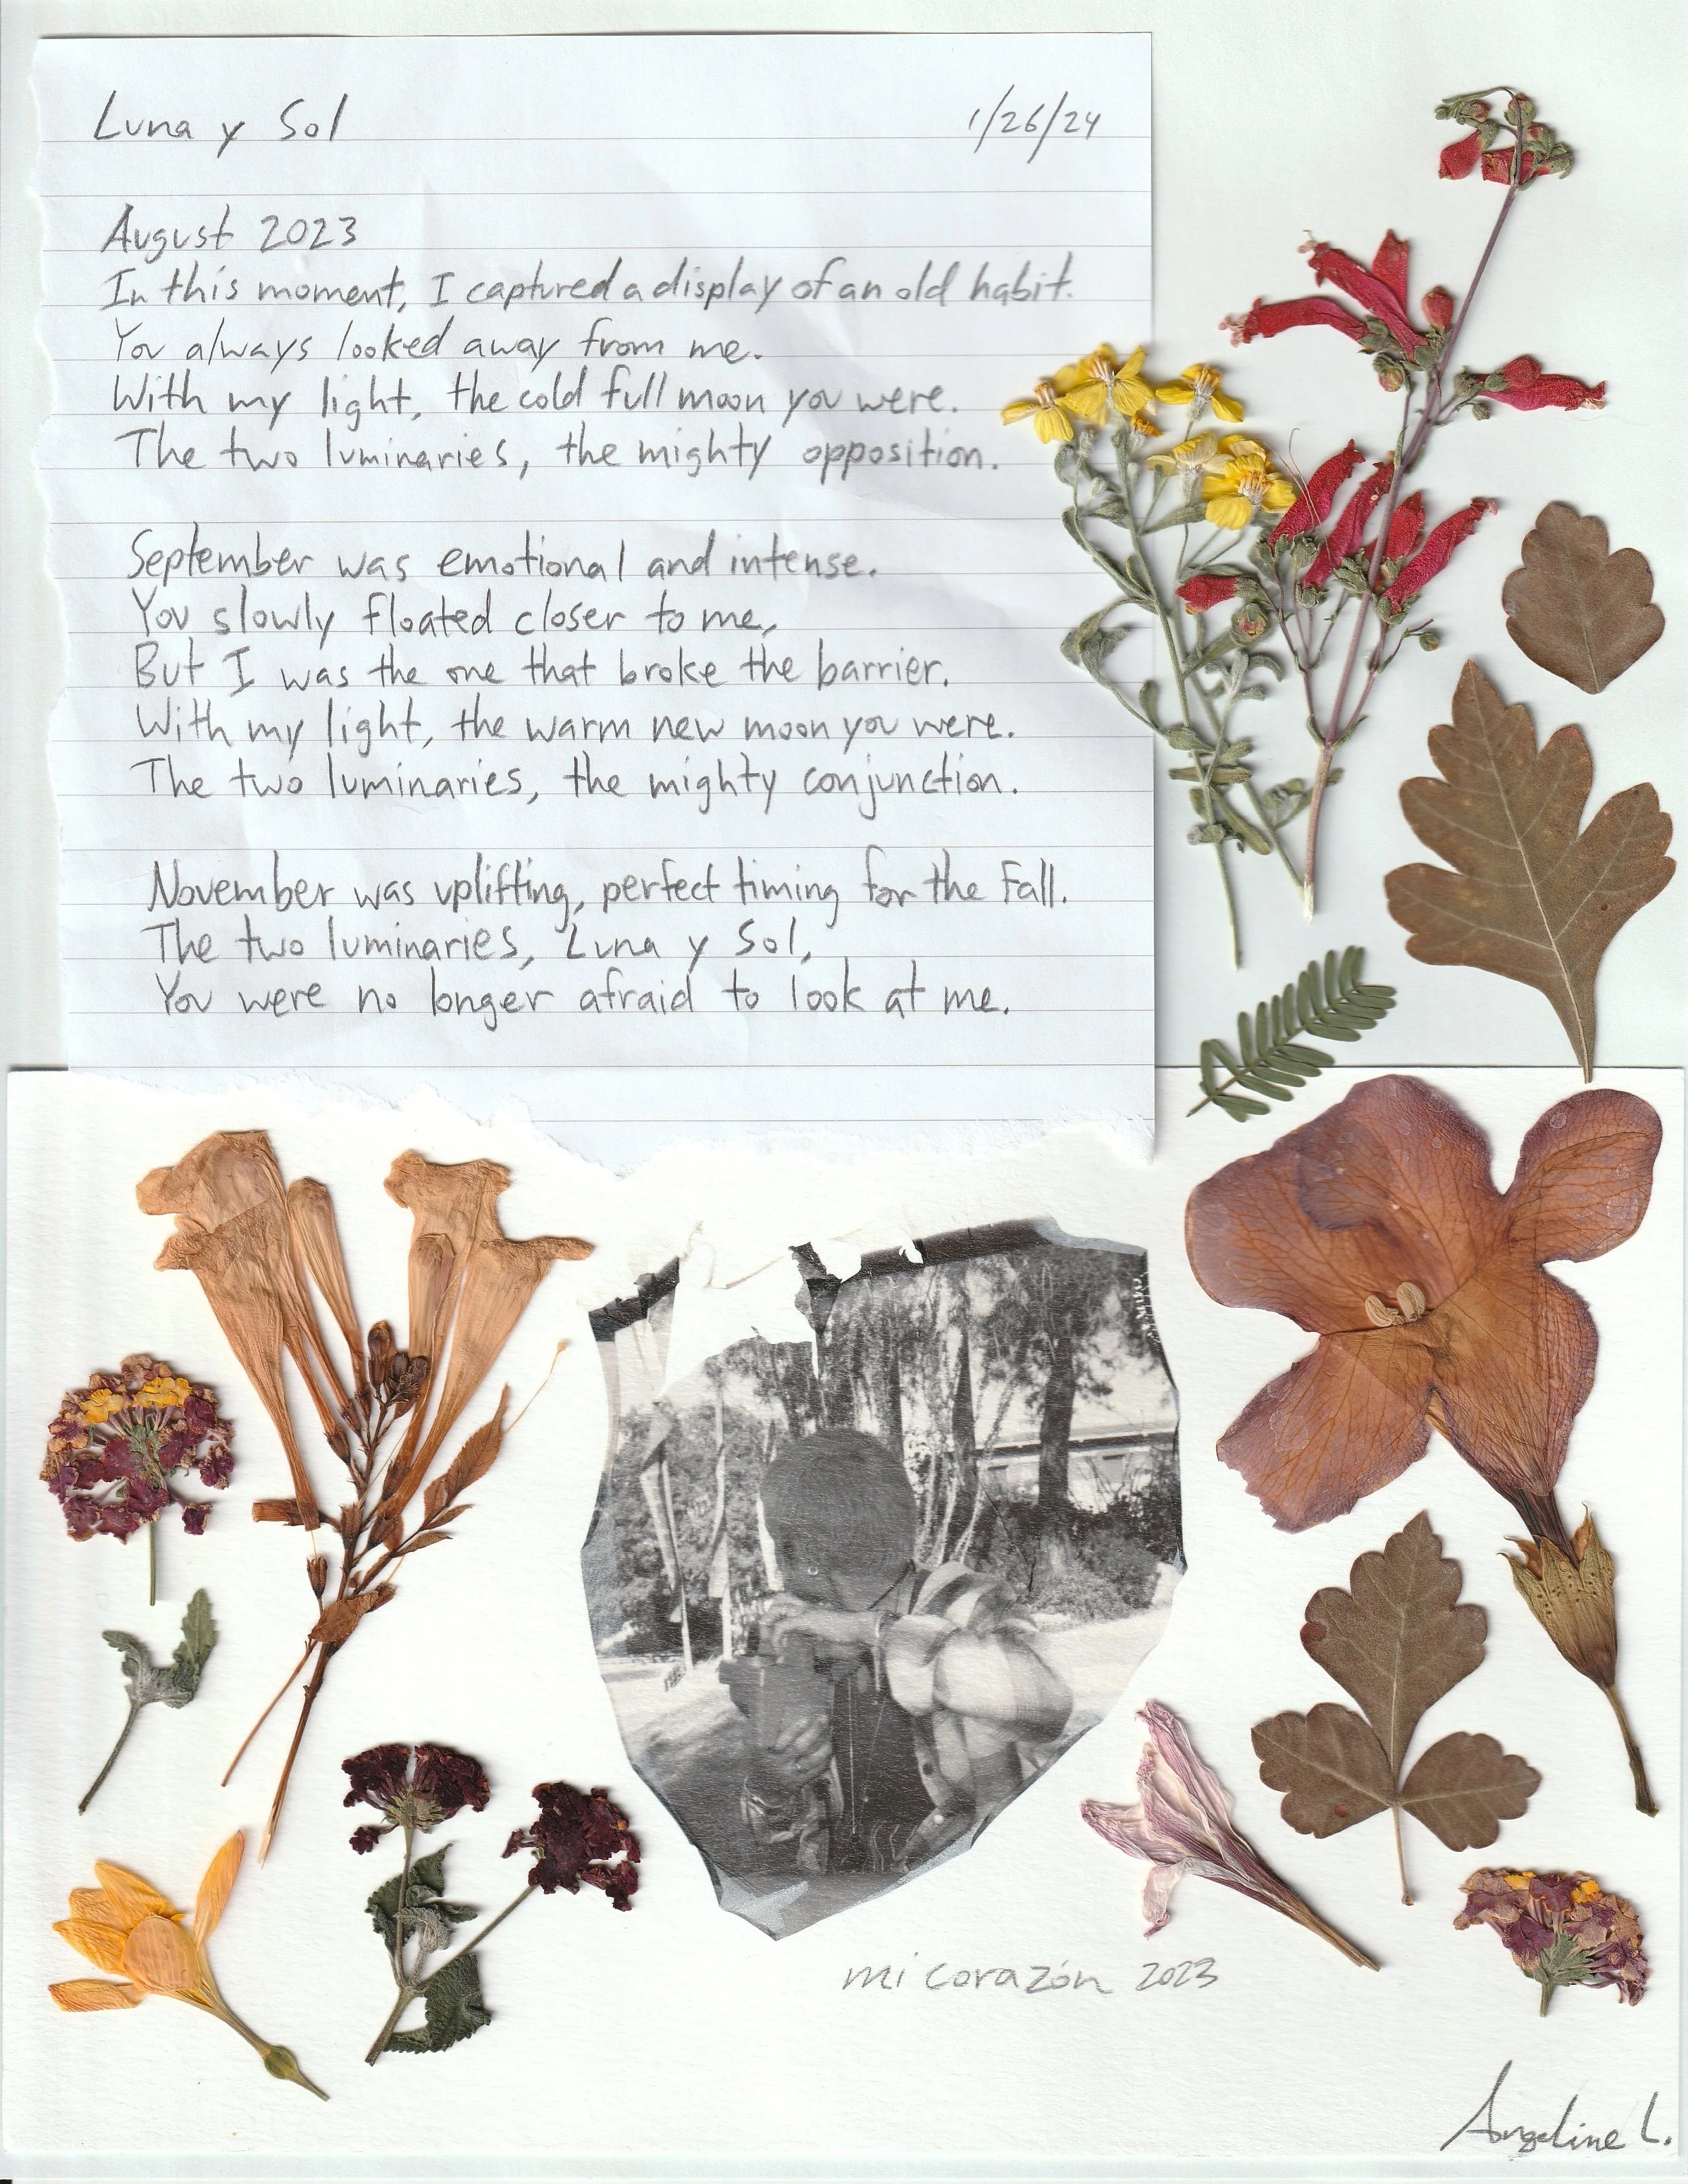 Luna y Sol
1/26/24
August 2023
In this moment, I captured a display of an old habit.
You always looked away from me.
With my light, the cold full moon you were.
The two luminaries, the mighty opposition.
September was emotional and intense.
You slowly floated closer to me,
But I was the one that broke the barrier.
With my light, the warm new moon you were.
The two luminaries, the mighty conjunction.
November was uplifting, perfect timing for the Fall.
The two luminaries, Luna y Sol,
You were no longer afraid to look at me.
mi corazón 2023
Angeline L.